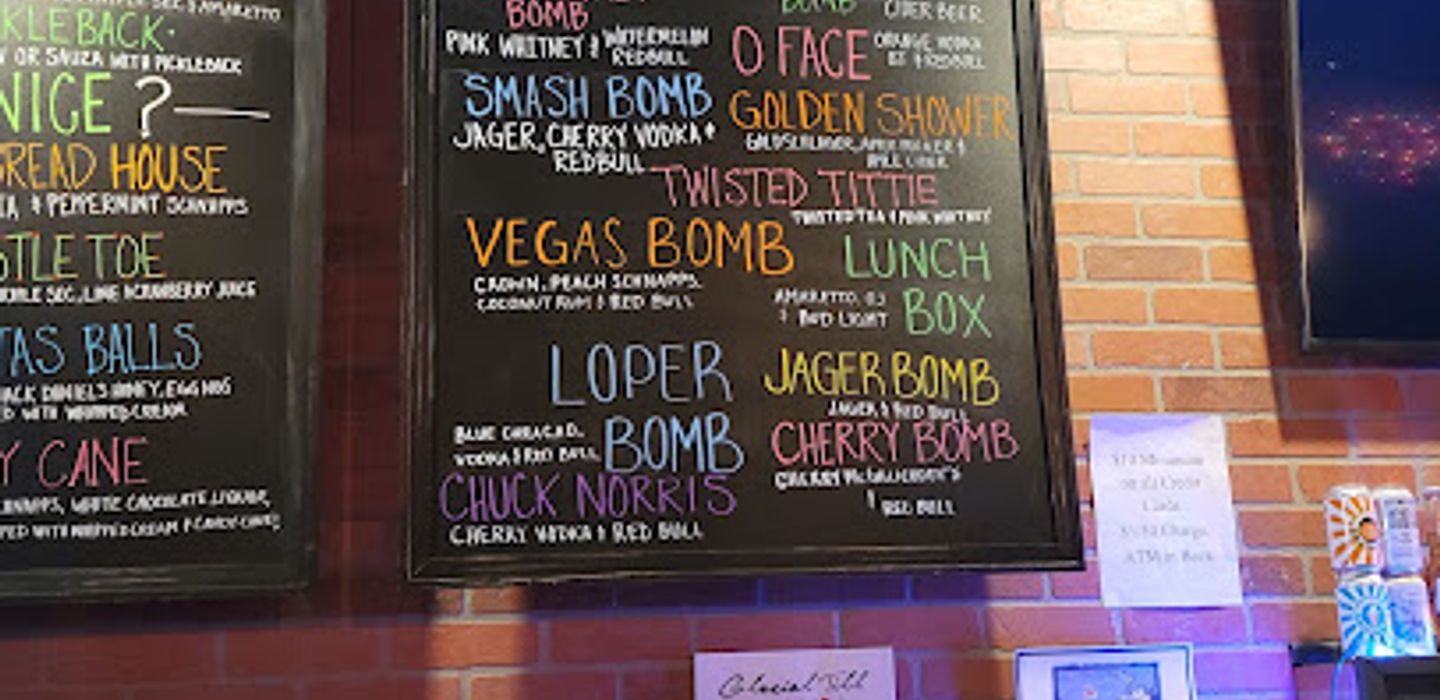 KLEBACK.
OR SAUZA WITH PICKLEBACK
NICE ?
READ HOUSE
& PEPPERMINT SCHNAPPS
TLE TOE
SEC, LIME & CRANBERRY JUICE
TAS BALLS
JACK DANIELS HONEY, EGG NOG
WITH WHIPPED CREAM
Y CANE
WHITE CHOCOLATE LIQUOR,
WITH WHIPPED CREAM & CANDY CANE
BOMB
PINK WHITNEY & WATERMELON
REDBULL
SMASH BOMB
JAGER, CHERRY VODKA &
REDBULL
VEGAS BOMB
CROWN, PEACH SCHNAPPS,
COCONUT RUM & RED BULL
LOPER
BOMB
BLUE CURACAO,
VODKA & RED BULL
CHUCK NORRIS
CHERRY VODKA & RED BULL
BOMB
OVER BEER
O FACE
ORANGE VODKA
& REDBULL
GOLDEN SHOWER
TWISTED TITTIE
TWISTED TEA & PINK WHITNEY
LUNCH
BOX
AMARETTO, OJ
& BUD LIGHT
JAGERBOMB
JAGER & RED BULL
CHERRY BOMB
CHERRY MCGILLICUDDY'S
& RED BULL
on all Credit
Cards
Charge
ATM in Back